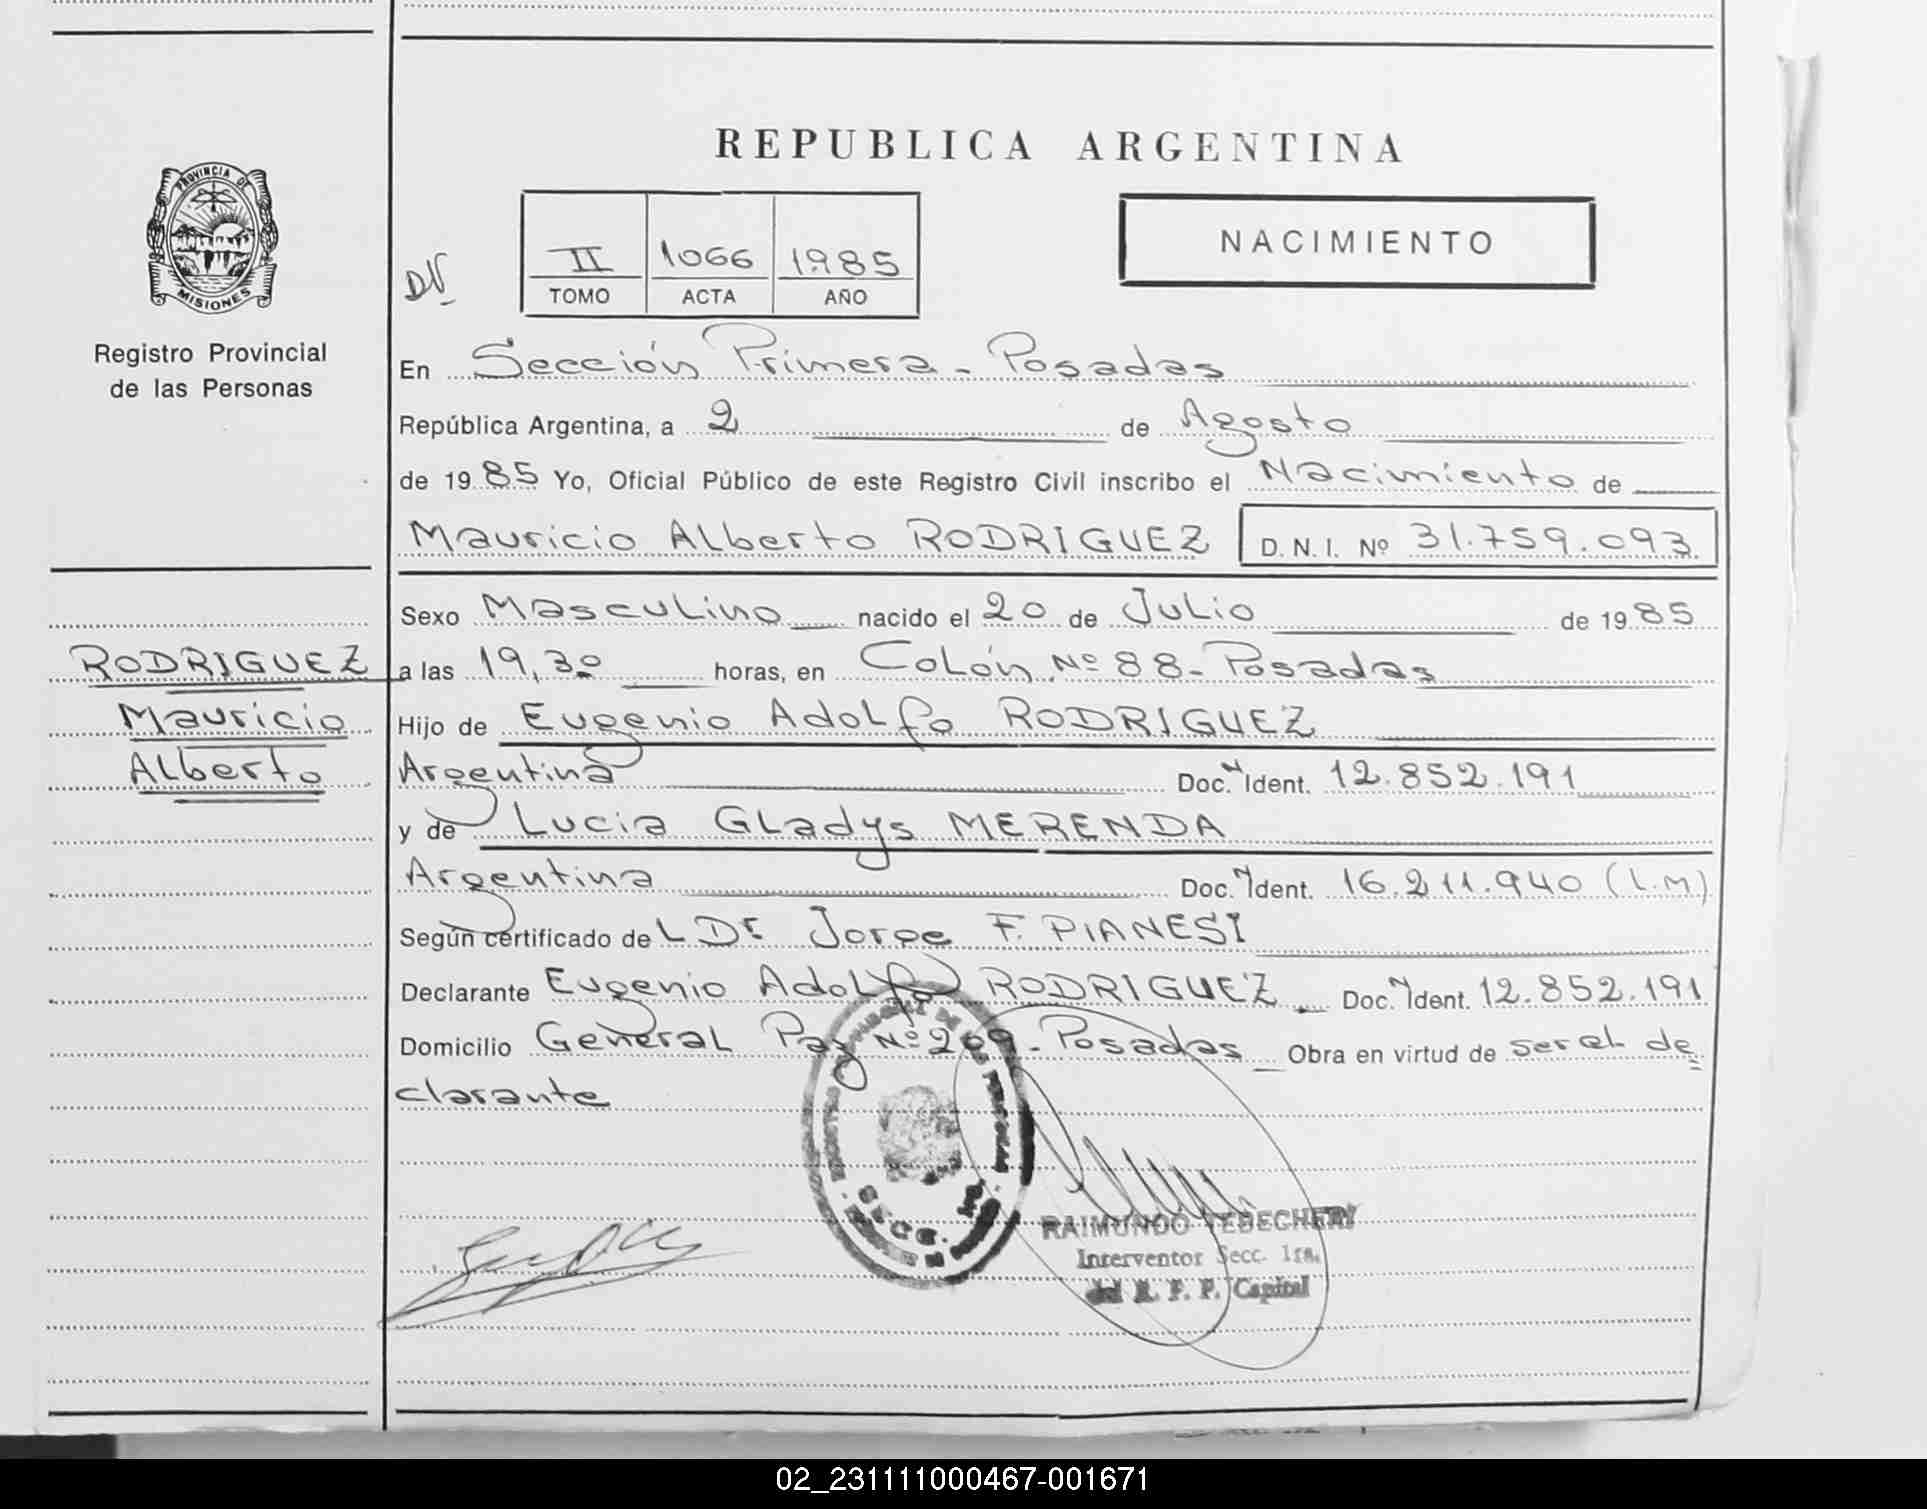 REPUBLICA ARGENTINA
PROVINCIA DE
MISIONES
Registro Provincial
de las Personas
DN
II 1066 1985
TOMO ACTA AÑO
NACIMIENTO
En Sección Primera - Posadas
República Argentina, a 2 de Agosto
de 1985 Yo, Oficial Público de este Registro Civil inscribo el Nacimiento de
Mauricio Alberto RODRIGUEZ D.N.I. Nº 31.759.093
Sexo Masculino nacido el 20 de Julio de 1985
RODRIGUEZ
Mauricio
Alberto
a las 19,30 horas, en Colón Nº 88 - Posadas
Hijo de Eugenio Adolfo RODRIGUEZ
Argentina Doc. N Ident. 12.852.191
y de Lucia Gladys MERENDA
Argentina Doc. N Ident. 16.211.940 (L.M)
Según certificado de L Dr Jorge F. PIANESI
Declarante Eugenio Adolfo RODRIGUEZ Doc. N Ident. 12.852.191
Domicilio General Paz Nº 209 - Posadas Obra en virtud de ser el de
clarante
RAIMUNDO
Interventor Secc. 1ra.
del R. P. P. Capital
02_231111000467-001671